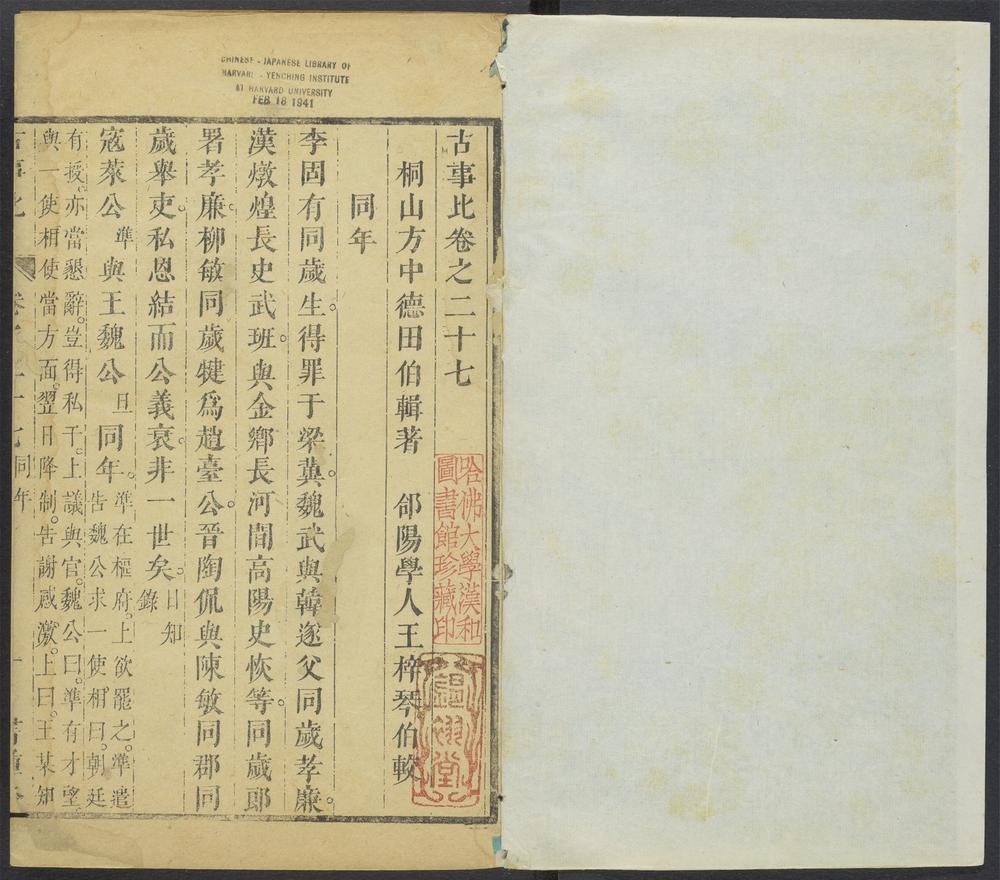 CHINESE - JAPANESE LIBRARY OF
HARVARD - YENCHING INSTITUTE
AT HARVARD UNIVERSITY
FEB 18 1941
古事比卷之二十七
桐山方中德田伯輯著 郃陽學人王梓琴伯較
同年
李固有同歲生。得罪于梁冀。魏武與韓遂父同歲孝廉。
漢燉煌長史武班。與金鄉長河間高陽史恢等。同歲郎
署孝廉。柳敏同歲犍爲趙臺公。晉陶侃與陳敏同郡同
歲舉吏。私恩結而公義衰。非一世矣。日知
錄
寇萊公準與王魏公旦同年。準在樞府。上欲罷之。準遣
告魏公求一使相。曰。朝廷
有授。亦當懇辭。豈得私干。上議與官。魏公曰。準有才望。
與一使相使當方面。翌日降制。告謝感激。上曰。王某知
古事比 卷之二十七 同年 一
哈佛大學漢和
圖書館珍藏印